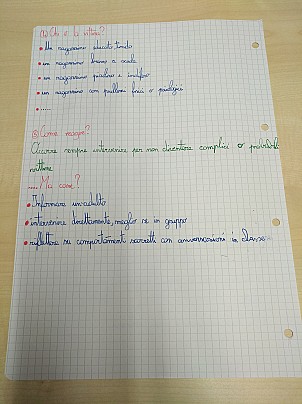 ④ Chi è la vittima?
• Un ragazzino educato, timido
• un ragazzino bravo a scuola
• un ragazzino pacifico e indifeso
• un ragazzino con problemi fisici o psicologici
• .....
⑤ Come reagire?
Occorre sempre intervenire per non diventare complici o probabili
vittime
.... Ma come?
• Informare un adulto
• intervenire direttamente, meglio se in gruppo
• riflettere su comportamenti scorretti con conversazioni in classe